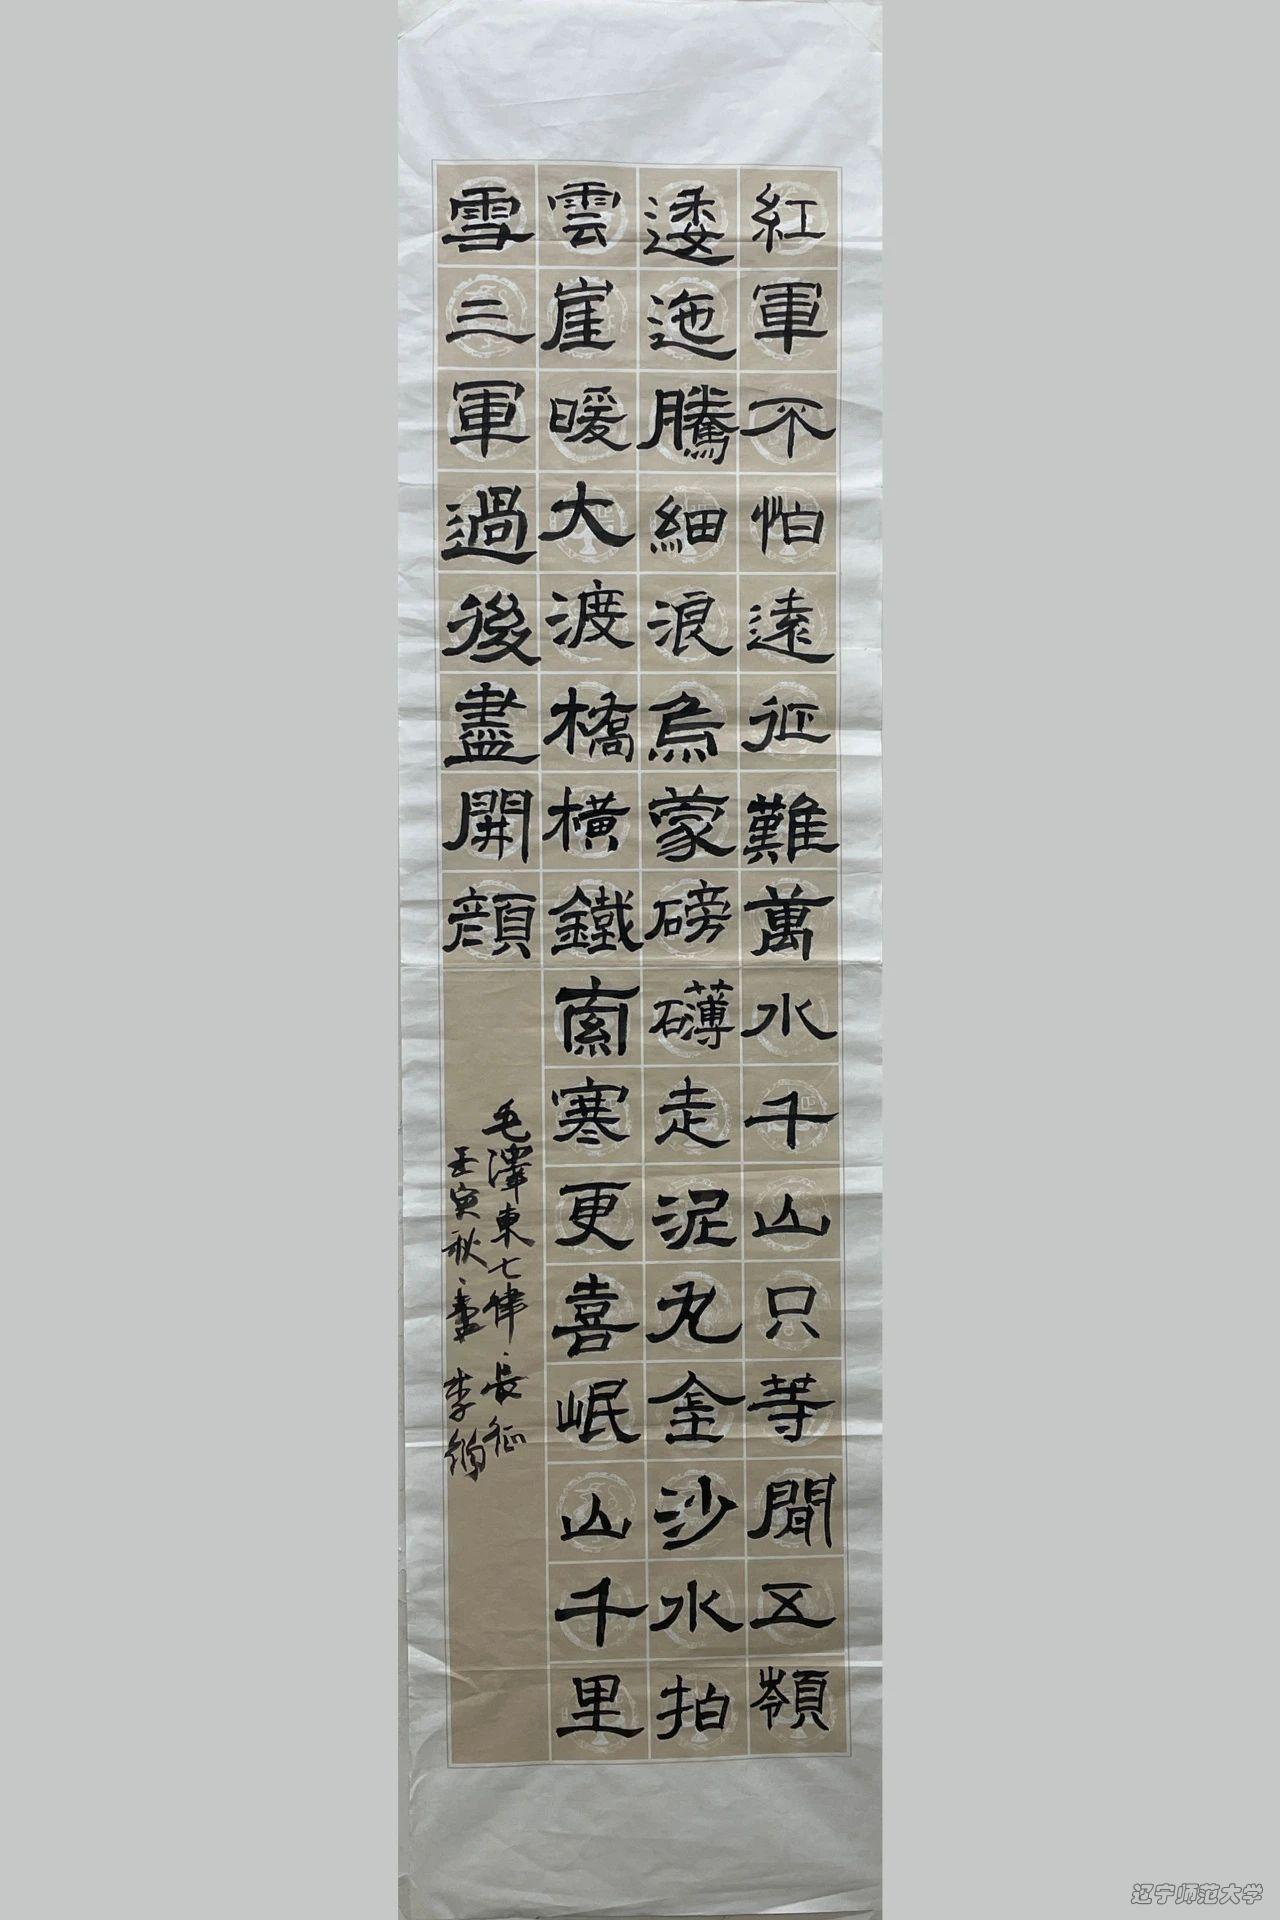 紅軍不怕遠征難萬水千山只等閒五嶺
逶迤騰細浪烏蒙磅礴走泥丸金沙水拍
雲崖暖大渡橋橫鐵索寒更喜岷山千里
雪三軍過後盡開顏
毛澤東七律·長征
壬寅秋 李
辽宁师范大学